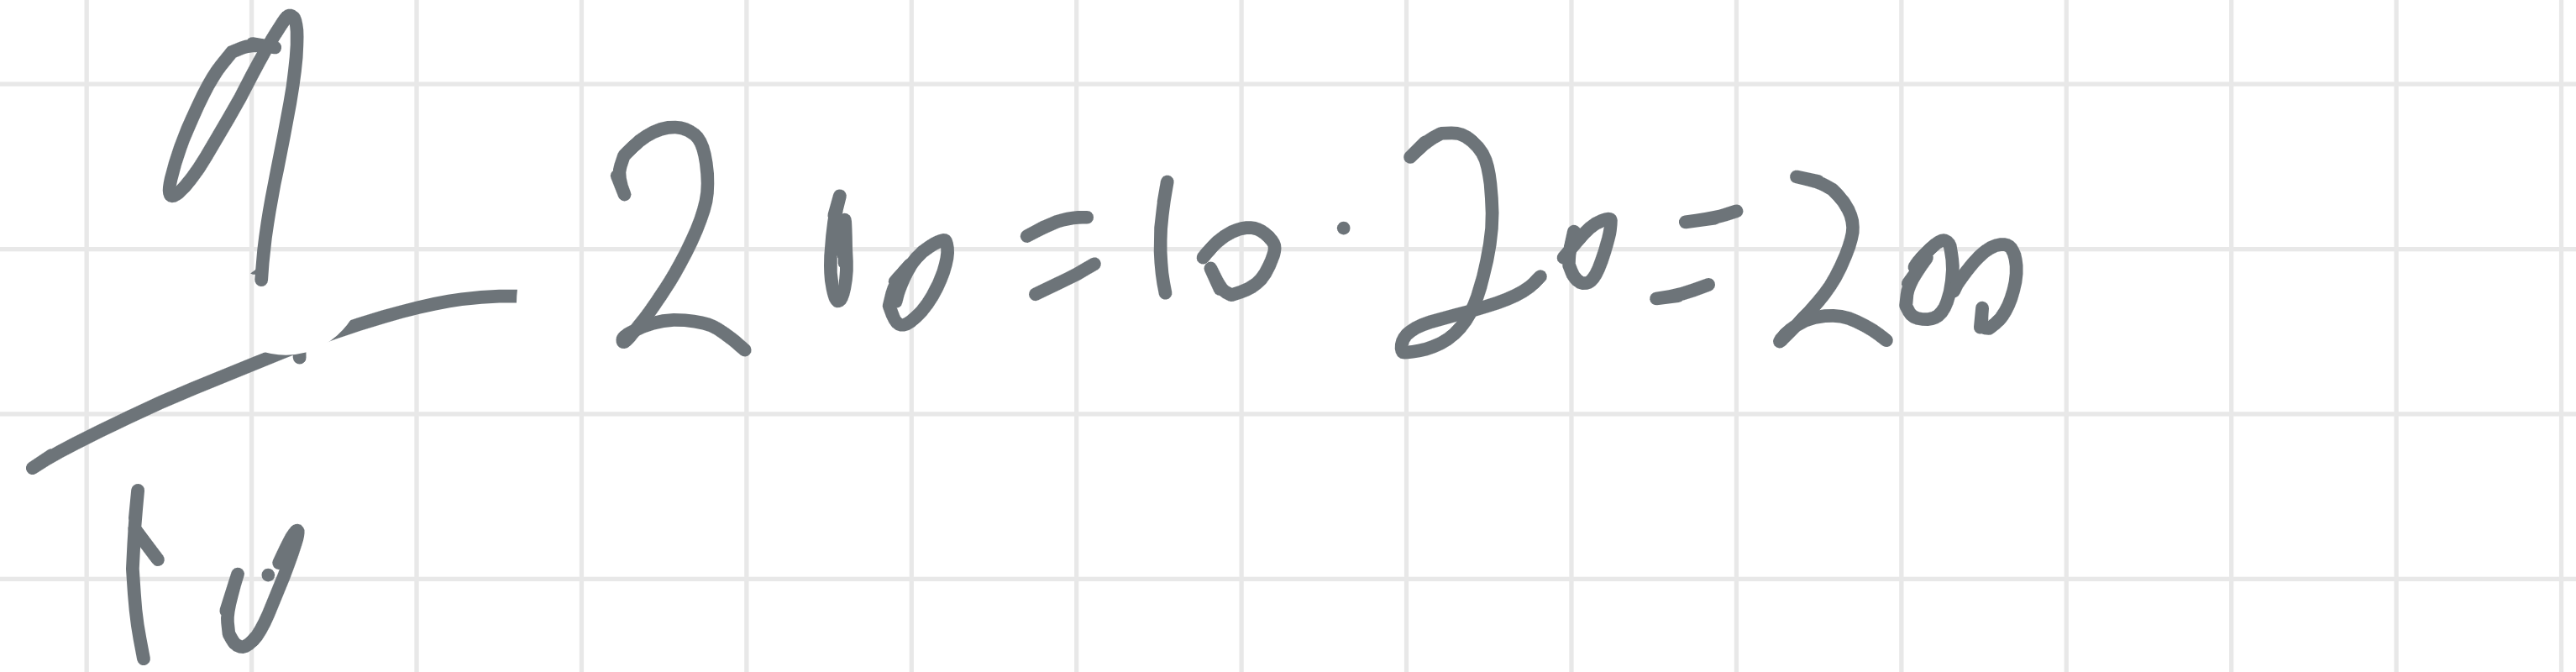 9/10 - 200 = 10 · 20 = 200